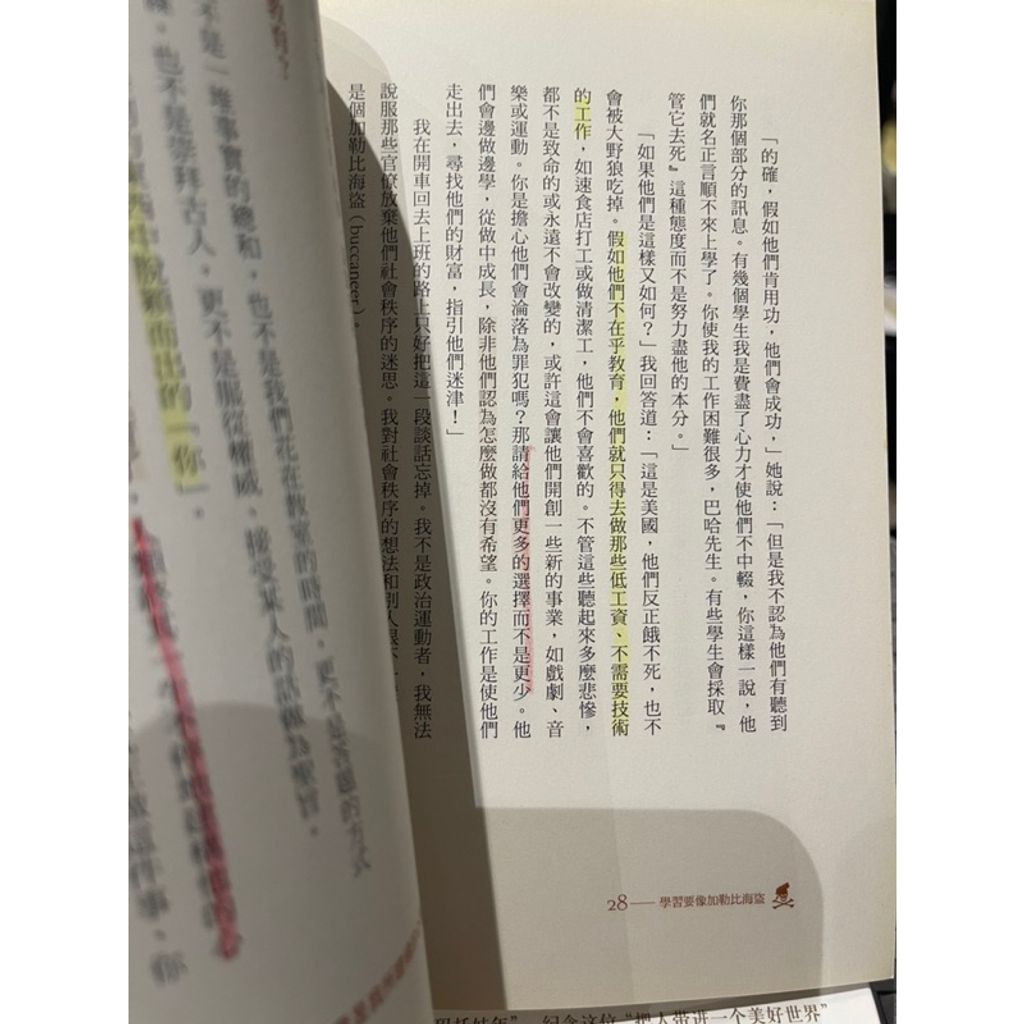 「的確，假如他們肯用功，他們會成功，」她說：「但是我不認為他們有聽到
你那個部分的訊息。有幾個學生我是費盡了心力才使他們不中輟，你這樣一說，他
們就名正言順不來上學了。你使我的工作困難很多，巴哈先生。有些學生會採取『
管它去死』這種態度而不是努力盡他的本分。」
「如果他們是這樣又如何？」我回答道：「這是美國，他們反正餓不死，也不
會被大野狼吃掉。假如他們不在乎教育，他們就只得去做那些低工資、不需要技術
的工作，如速食店打工或做清潔工，他們不會喜歡的。不管這些聽起來多麼悲慘，
都不是致命的或永遠不會改變的，或許這會讓他們開創一些新的事業，如戲劇、音
樂或運動。你是擔心他們會淪落為罪犯嗎？那請給他們更多的選擇而不是更少。他
們會邊做邊學，從做中成長，除非他們認為怎麼做都沒有希望。你的工作是使他們
走出去，尋找他們的財富，指引他們迷津！」
我在開車回去上班的路上只好把這一段談話忘掉。我不是政治運動者，我無法
說服那些官僚放棄他們社會秩序的迷思。我對社會秩序的想法和別人很不一
是個加勒比海盜（buccaneer）。
28 — 學習要像加勒比海盜
不是一堆事實的總和，也不是我們花在教室的時間，更不是答題的方式
也不是崇拜古人，更不是服從權威、接受某人的話做為聖旨。
中脫穎而出的「你」。
紀念这位“把人带进一个美好世界”